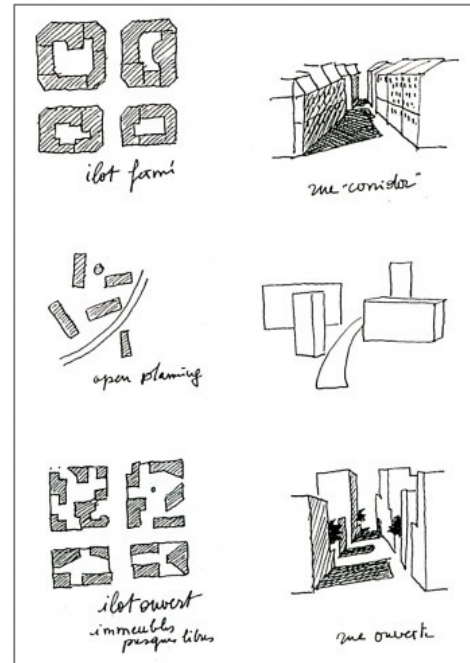 ilot fermé
rue "corridor"
open planning
ilot ouvert
immeubles
presque libres
rue ouverte